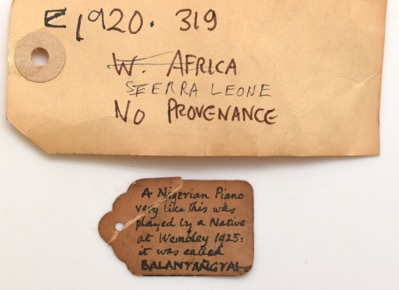 E1920. 319
W. AFRICA
SIERRA LEONE
NO PROVENANCE
A Nigerian Piano
very like this was
played by a Native
at Wembley 1925:
it was called
BALANYANGYAL